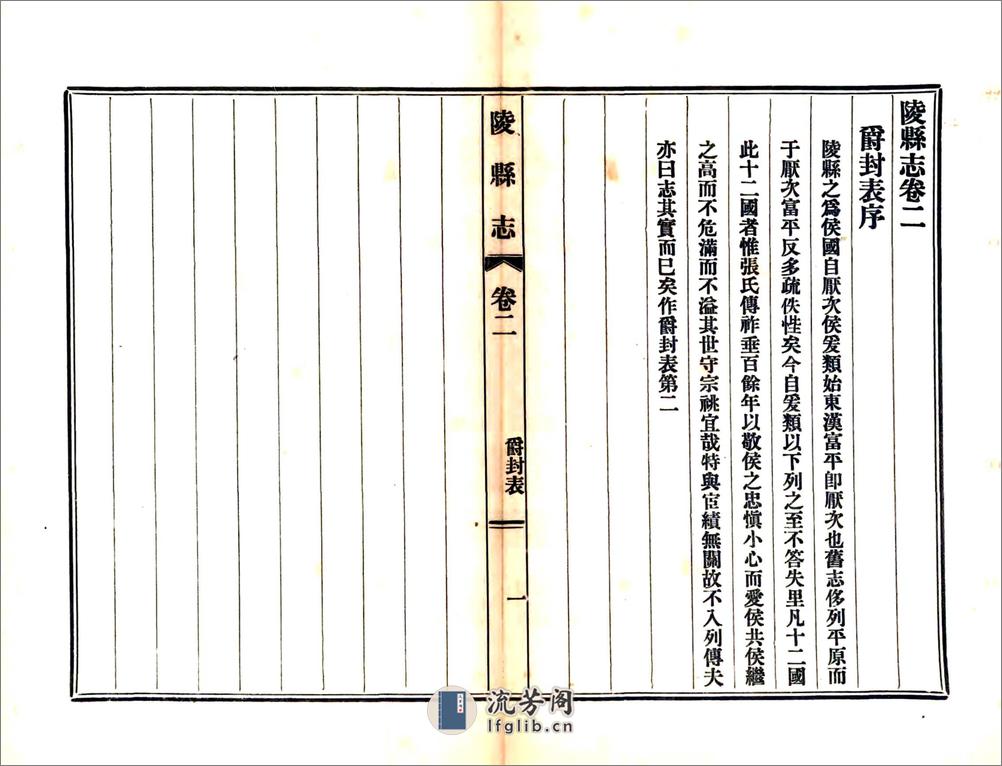 陵縣志卷二
爵封表序
陵縣之爲侯國自厭次侯爰類始東漢富平卽厭次也舊志侈列平原而
于厭次富平反多疏佚惟矣今自爰類以下列之至不答失里凡十二國
此十二國者惟張氏傳祚垂百餘年以敬侯之忠愼小心而愛侯共侯繼
之高而不危滿而不溢其世守宗祧宜哉特與宦績無關故不入列傳夫
亦曰志其實而已矣作爵封表第二
陵縣志
卷二
爵封表
一
流芳阁
lfglib.cn